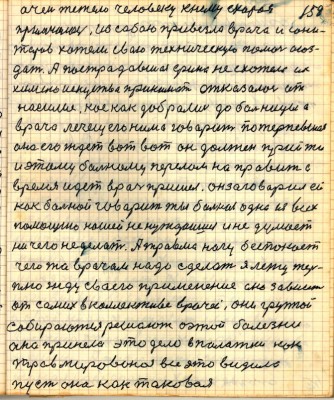 а чем тетело человеку к нему скорая 158
примчалась, из собою привезла врача и сани-
таров хотели свою техническую помощь соз-
дат. А пострадавшая срика не схотела их
химию искуства принимат отказалась от
насилие, кое как добрались до больницы а
врача лечещего нима говорит потерпевшая
она его ждет вот вот он должен прийти
и этому больному перелом на правит а
время идет врач пришел, он заговорил ей
как больной говорит ты больная одна из всех
помощию нашей не нуждаишся и не думает
ничего не делат. А правая нога беспокоет
чего та врачам надо сделат я лежу тер-
плю жду своего применение оно зависит
от самих в коллективе врачей, они группой
собираются решают о этой болезни
она принела это дело в палатки как
травмирована все это видило
пуст она как таковая